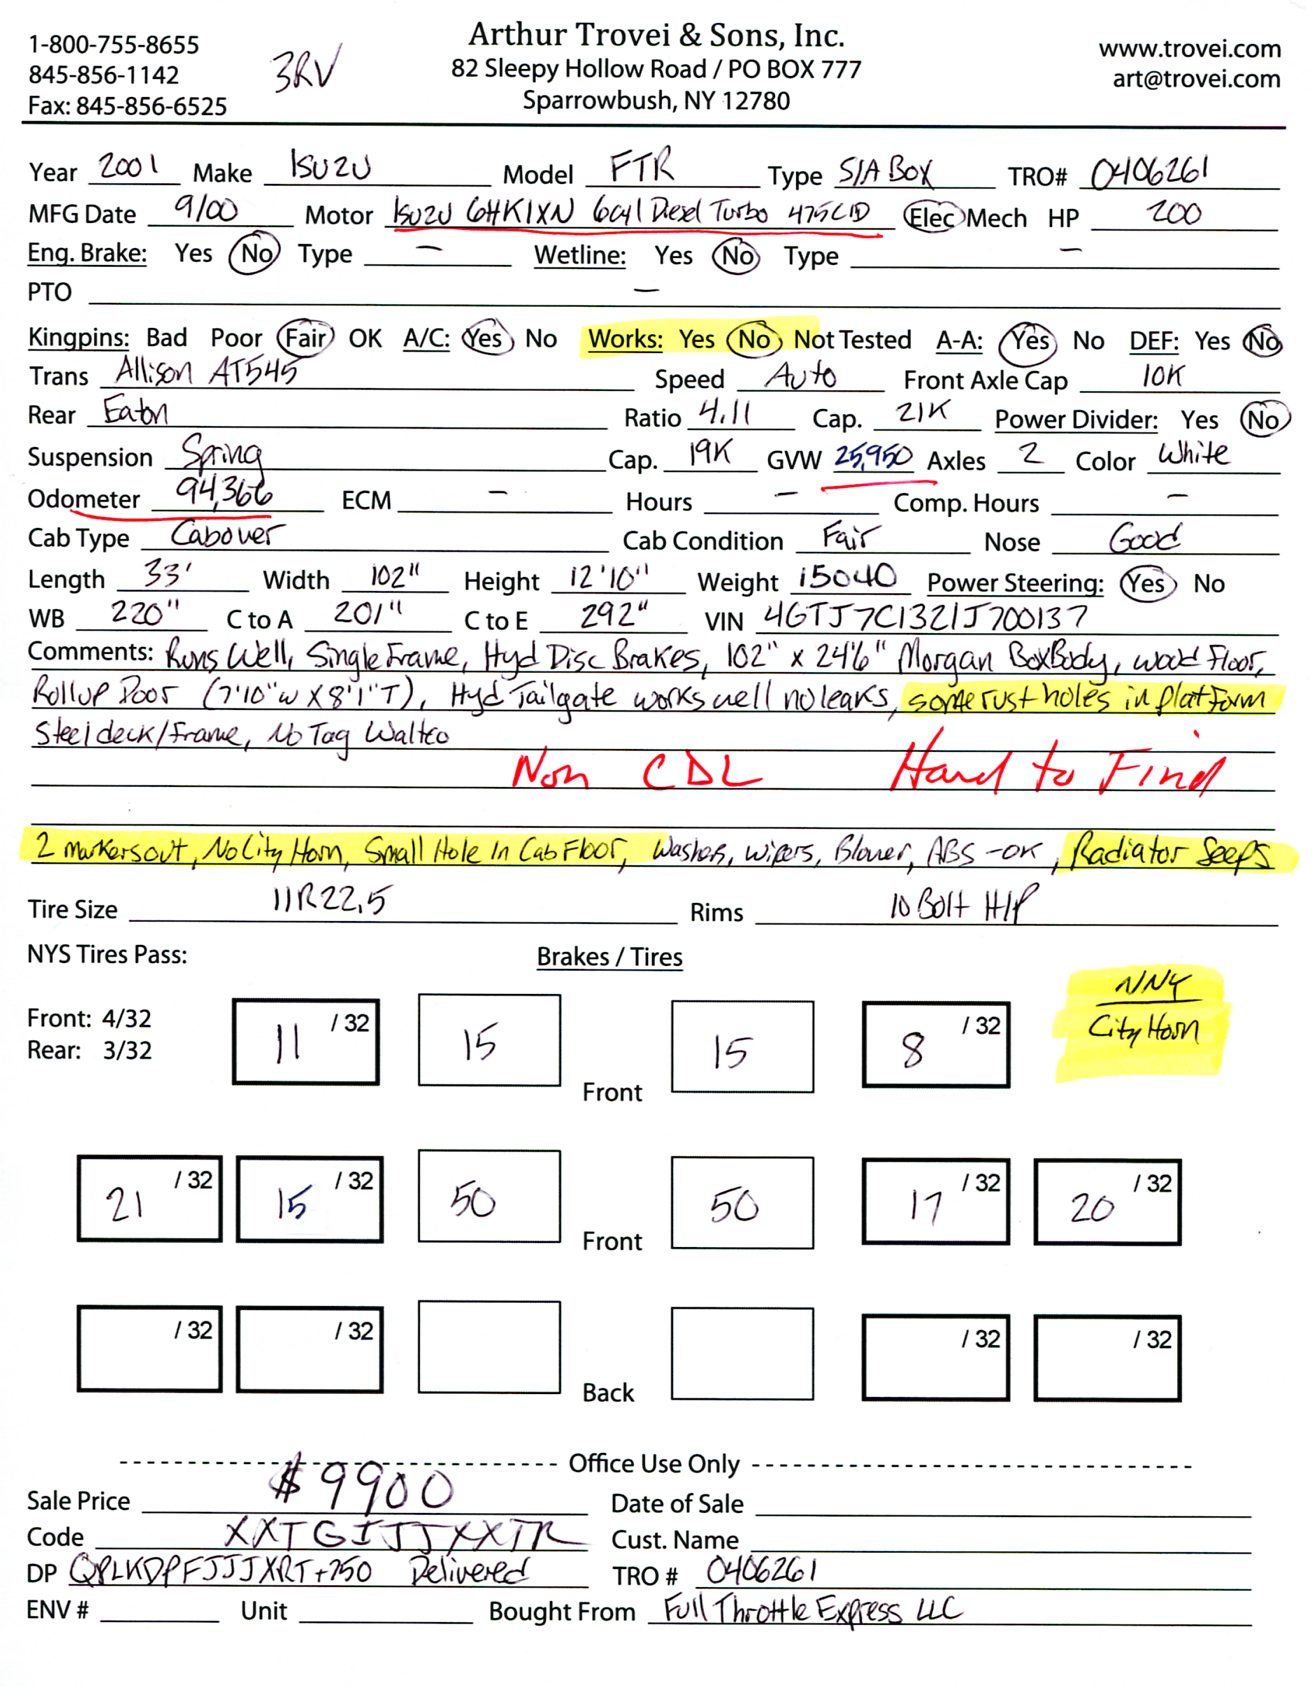 Arthur Trovei & Sons, Inc.
1-800-755-8655 82 Sleepy Hollow Road / PO BOX 777 www.trovei.com
845-856-1142 3RV Sparrowbush, NY 12780 art@trovei.com
Fax: 845-856-6525
Year 2001 Make ISUZU Model FTR Type S/A Box TRO# 0406261
MFG Date 9/00 Motor ISUZU 6HK1XN 6cyl Diesel Turbo 475CID Elec Mech HP 200
Eng. Brake: Yes No Type — Wetline: Yes No Type —
PTO —
Kingpins: Bad Poor Fair OK A/C: Yes No Works: Yes No Not Tested A-A: Yes No DEF: Yes No
Trans Allison AT545 Speed Auto Front Axle Cap 10K
Rear Eaton Ratio 4.11 Cap. 21K Power Divider: Yes No
Suspension Spring Cap. 19K GVW 25,950 Axles 2 Color White
Odometer 94,366 ECM — Hours — Comp. Hours —
Cab Type Cabover Cab Condition Fair Nose Good
Length 33' Width 102" Height 12'10" Weight 15040 Power Steering: Yes No
WB 220" C to A 201" C to E 292" VIN 4GTJ7C1321J700137
Comments: Runs Well, Single Frame, Hyd Disc Brakes, 102" x 24'6" Morgan BoxBody, wood Floor,
Rollup Door (7'10"w x 8'1"T), Hyd Tailgate works well no leaks, some rust holes in platform
Steel deck/frame, No Tag Waltco
Non CDL Hard to Find
2 markers out, No City Horn, Small Hole In Cab Floor, Washers, Wipers, Blower, ABS -OK, Radiator Seeps
Tire Size 11R22.5 Rims 10 Bolt H/P
NYS Tires Pass: Brakes / Tires
NNY
City Horn
Front: 4/32
Rear: 3/32
11 /32 15 15 8 /32
Front
21 /32 15 /32 50 50 17 /32 20 /32
Front
/32 /32 /32 /32
Back
Office Use Only
Sale Price $9900 Date of Sale
Code XXTGIJJXXTR Cust. Name
DP QPLKDPFJJJXRT+750 Delivered TRO # 0406261
ENV # Unit Bought From Full Throttle Express LLC